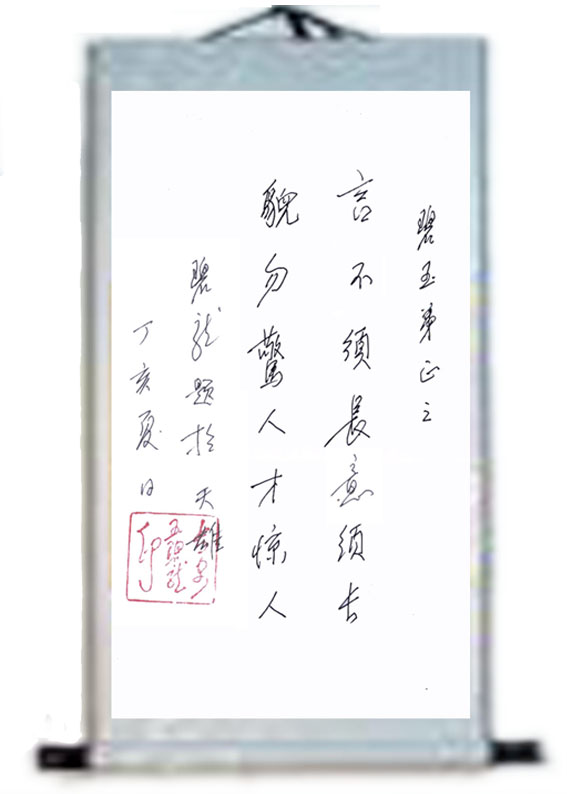 碧玉弟正之
言不須長意须长
貌勿驚人才惊人
碧龙題於天雄
丁亥夏日